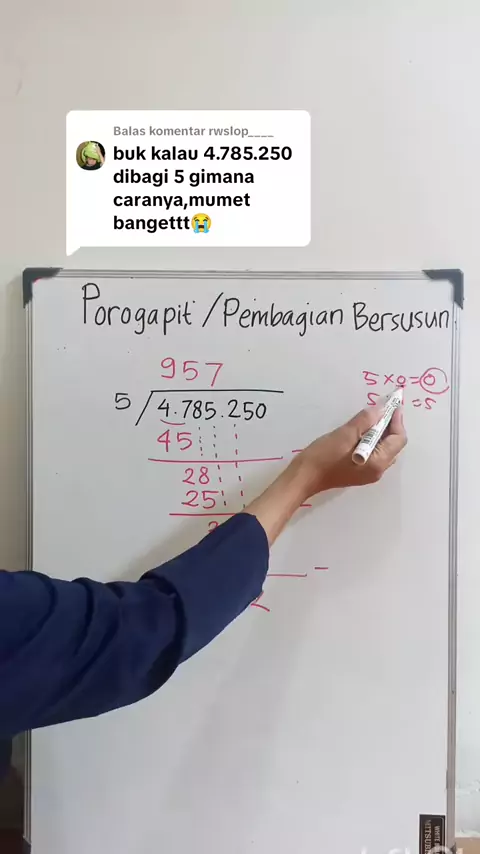 Balas komentar rwslop____
buk kalau 4.785.250
dibagi 5 gimana
caranya,mumet
bangettt😭
Porogapit / Pembagian Bersusun
957
5 / 4.785.250
45
28
25
5 × 0 = 0
5 = 5